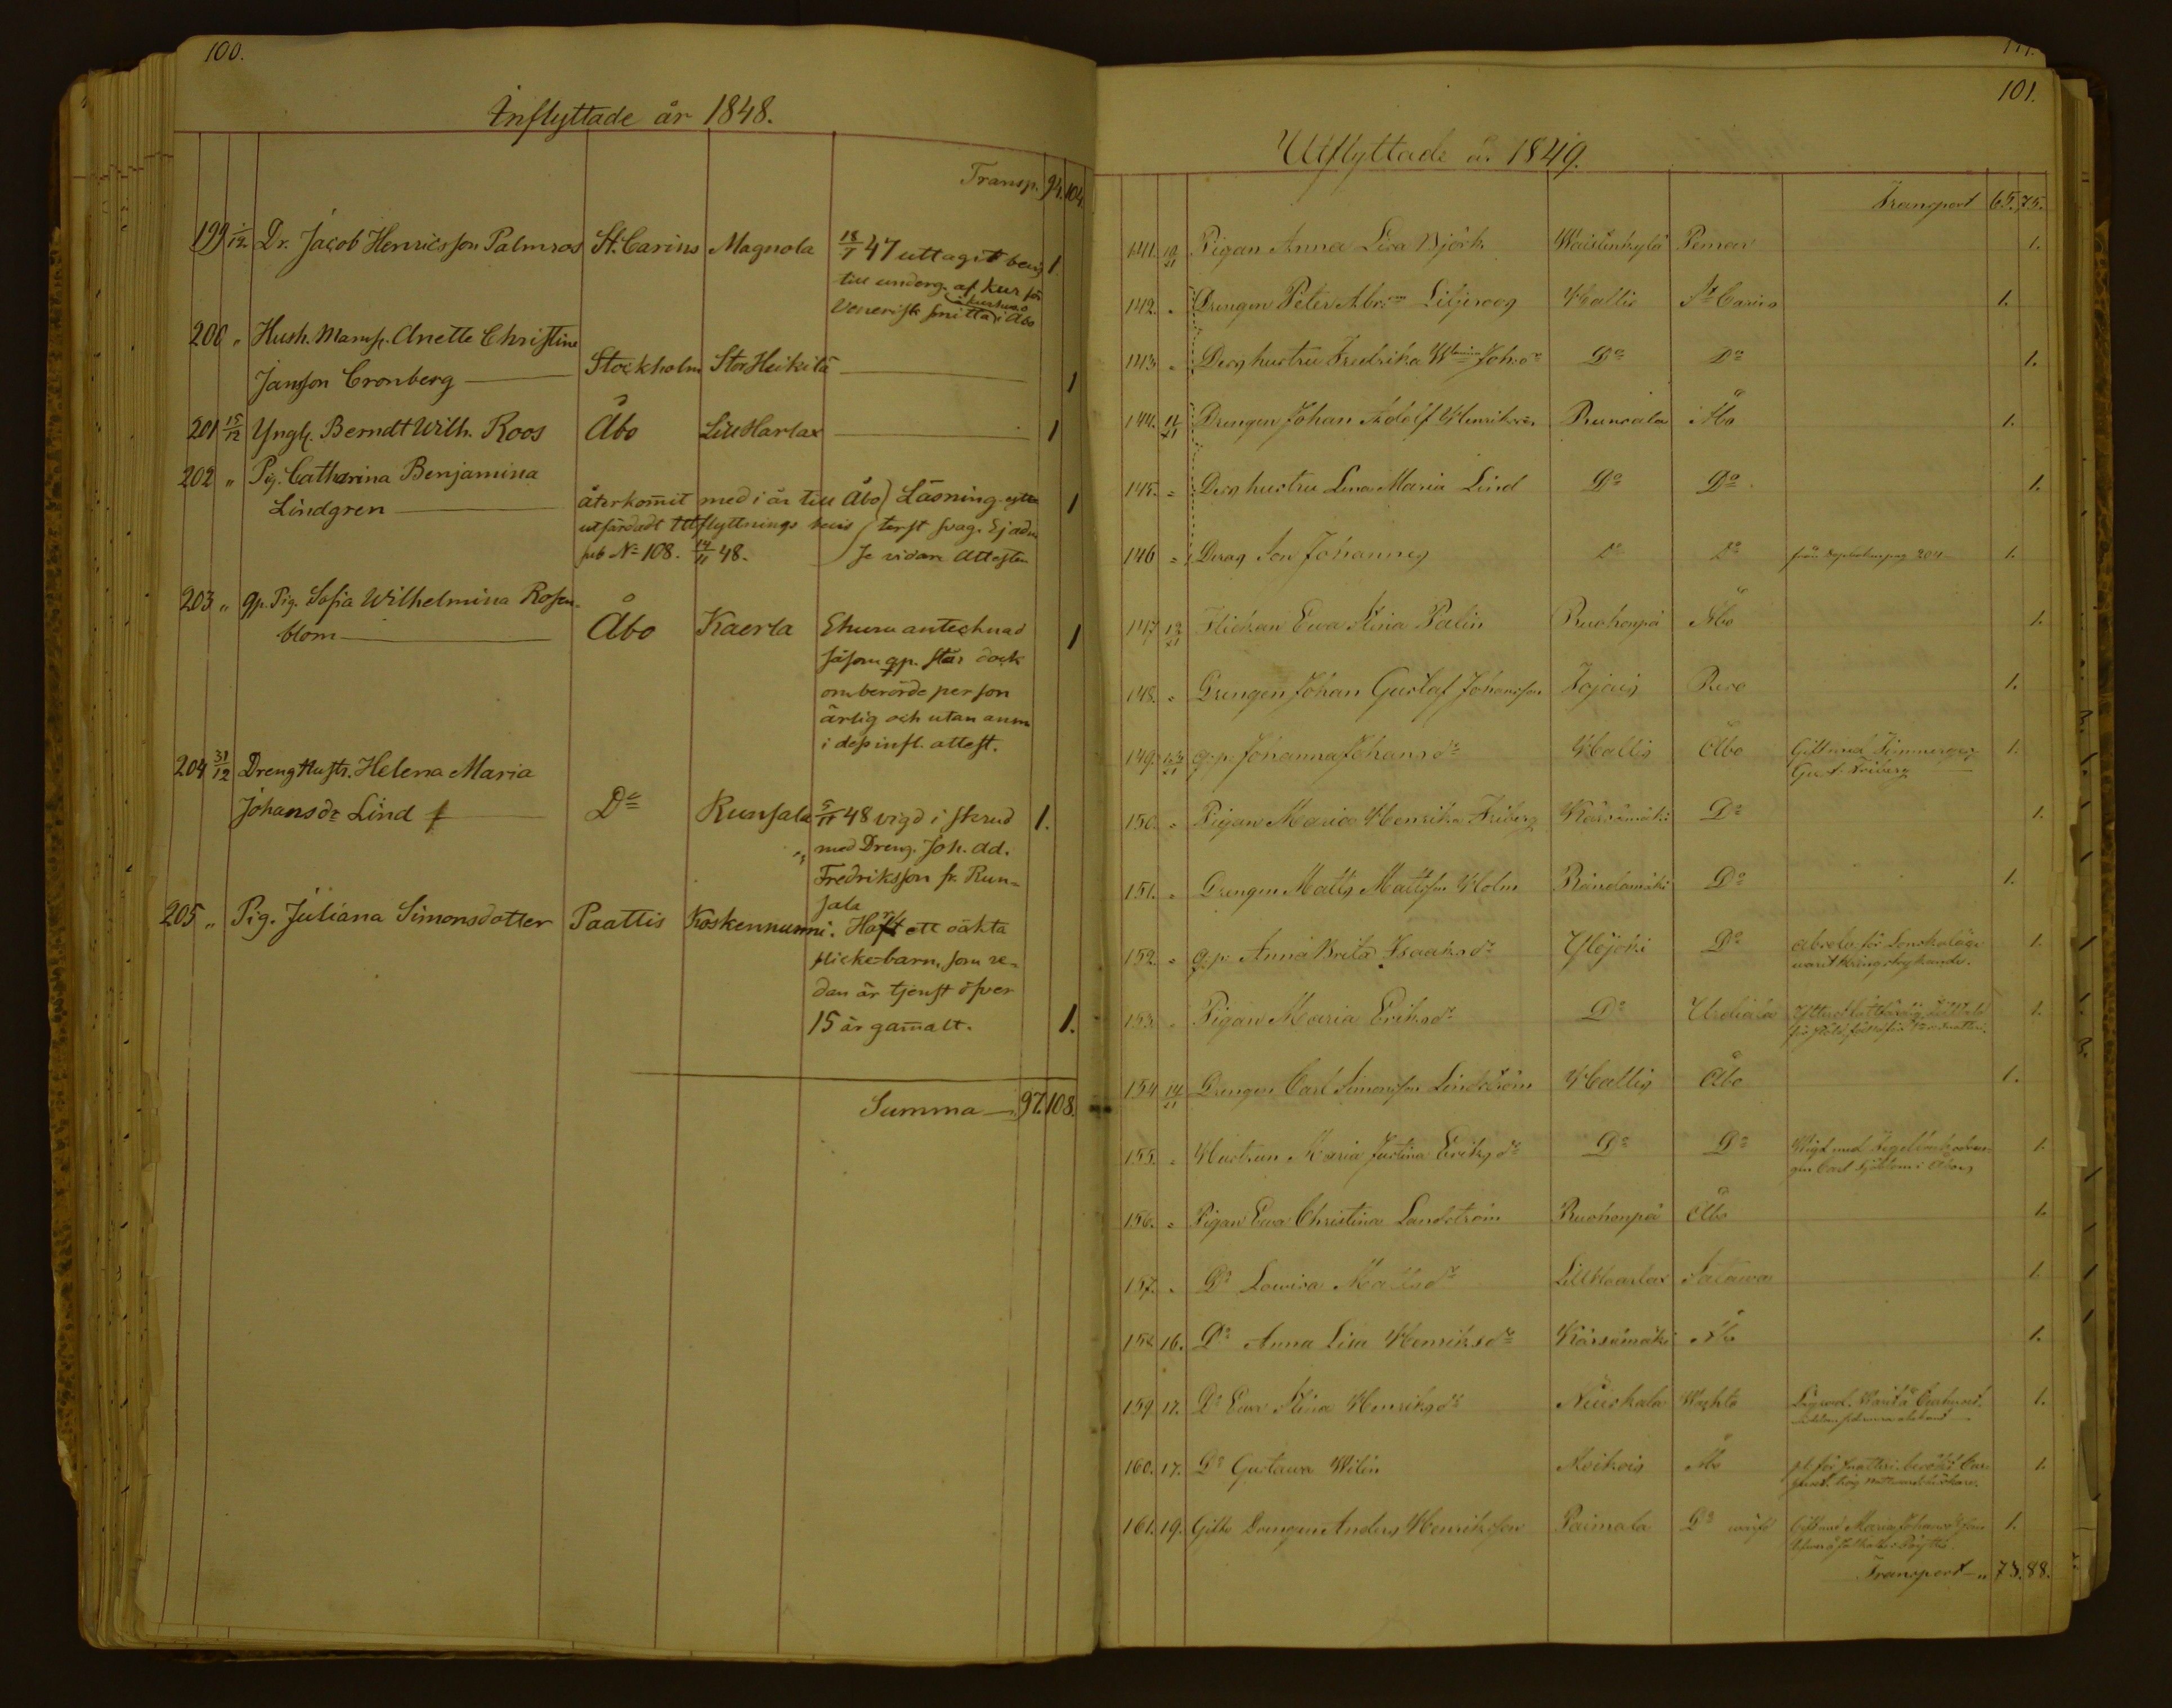 100.
Inflyttade år 1848.
Transp. 94. 104.
199 1/12 Dr. Jacob Henricsson Palmros St. Carins Magnola 18/7 47 uttagit bevis 1
till underg. af Kur för
i kurhuset
Venerisk smitta i Åbo
200 " Hush. Mams. Anette Christine
Jansson Cronberg Stockholm Stor Heikilä 1
201 15/12 Yngl. Berndt Wilh. Roos Åbo Lill Harlax 1
202 " Pig. Catharina Benjamina
Lindgren återkommit med i år till Åbo Läsning 1
utfärdadt utflyttnings bevis svag. Ej
sub No 108. 14/11 48. Se vidare Attesten
203 " qp. Pig. Sofia Wilhelmina Rosen-
blom Åbo Kaerla Ehuru antecknad 1
såsom qp. står dock
omberörde person
ärlig och utan anm
i dess infl. attest.
204 31/12 Dreng Hustr. Helena Maria
Johansdr Lind Do Runsala 5/11 48 vigd i skrud 1.
med Dreng. Joh. Ad.
Fredriksson fr. Run-
sala
205 " Pig. Juliana Simonsdotter Paattis Koskennurmi. Haft ett oäkta
flicke-barn, som re-
dan är tjenst öfver
15 år gammalt. 1.
Summa 97. 108.
101.
Utflyttade år 1849.
Transport 65. 75.
141. Pigan Anna Lisa Björk Pemar 1.
142. " Drengen Peter Liljeroos Hallis St Carins 1.
143. " Dess hustru Fredrika Joh:dr Do Do 1.
144. Drengen Johan Adolf Henriksson Runsala Åbo 1.
145. " Dess hustru Lena Maria Lind Do Do 1.
146 " Deras Son Johannes Do Do 1.
147 Flickan Ewa Stina Palin Ruohonpä Åbo 1.
148. " Drengen Johan Gustaf Johansson Rusko 1.
149. g.p. Johanna Johansdr Hallis Åbo Gift med Timmergesz. 1.
Gust. Friberg
150. " Pigan Maria Henrika Friberg Kärsämäki Do 1.
151. " Drengen Matts Mattsson Holm Räntämäki Do 1.
152. " g.p. Anna Brita Isaksdr Ylöjoki Do absolv. för Lönskaläge 1.
varit kringstrykande.
153. " Pigan Maria Eriksdr Do Urdiala 1.
154 Drengen Carl Simonsson Lindström Hallis Åbo 1.
155. " Hustrun Maria Justina Eriksdr Do Do Wigd med 1.
gen Carl i Åbo
156. " Pigan Ewa Christina Landström Ruohonpä Åbo 1.
157. " Do Lowisa Mattsdr Lill Haarlax Satawa 1.
158 16. Do Anna Lisa Henriksdr Kärsämäki Åbo 1.
159 17. Do Ewa Stina Henriksdr Niuskala Wehto 1.
160. 17. Do Gustawa Wilén Moikois Åbo 1.
161. 19. Gifte Drengen Anders Henriksson Paimala Do Gift med Maria 1.
Transport 73. 88.